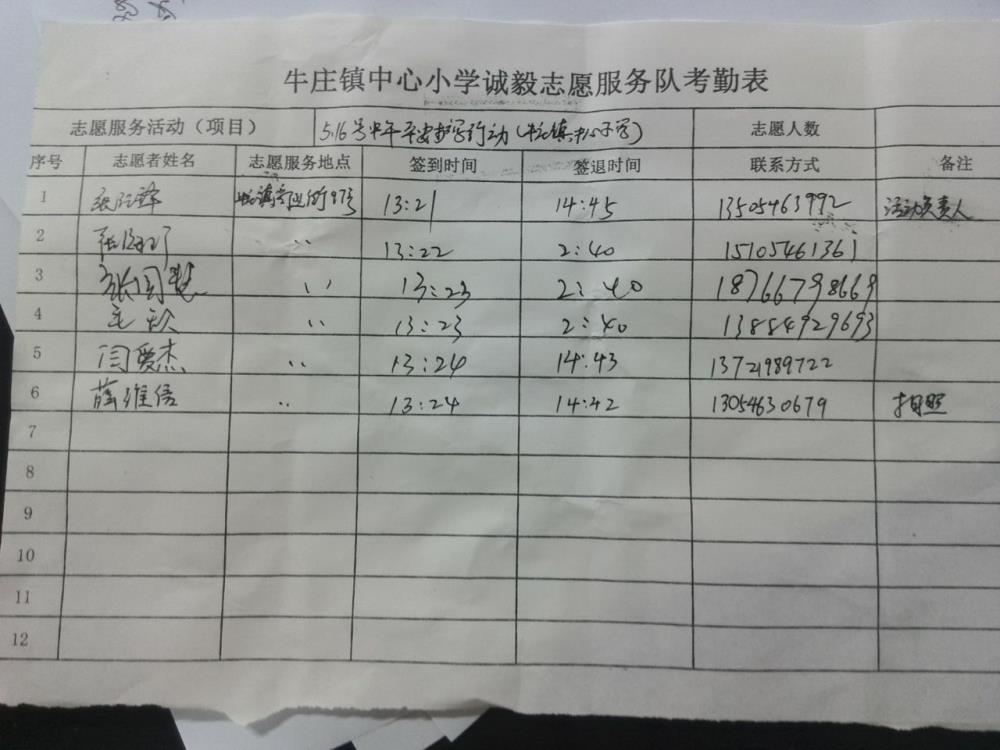 牛庄镇中心小学诚毅志愿服务队考勤表
志愿服务活动（项目） 5.16号中午平安护学行动（牛庄镇中心小学） 志愿人数
序号 志愿者姓名 志愿服务地点 签到时间 签退时间 联系方式 备注
1 13:21 14:45 13505463992 活动负责人
2 〃 13:22 2:40 15105461361
3 〃 13:23 2:40 18766798669
4 〃 13:23 2:40 13884929693
5 闫爱杰 〃 13:24 14:43 13721989722
6 薛维信 〃 13:24 14:42 13054630679 拍照
7
8
9
10
11
12